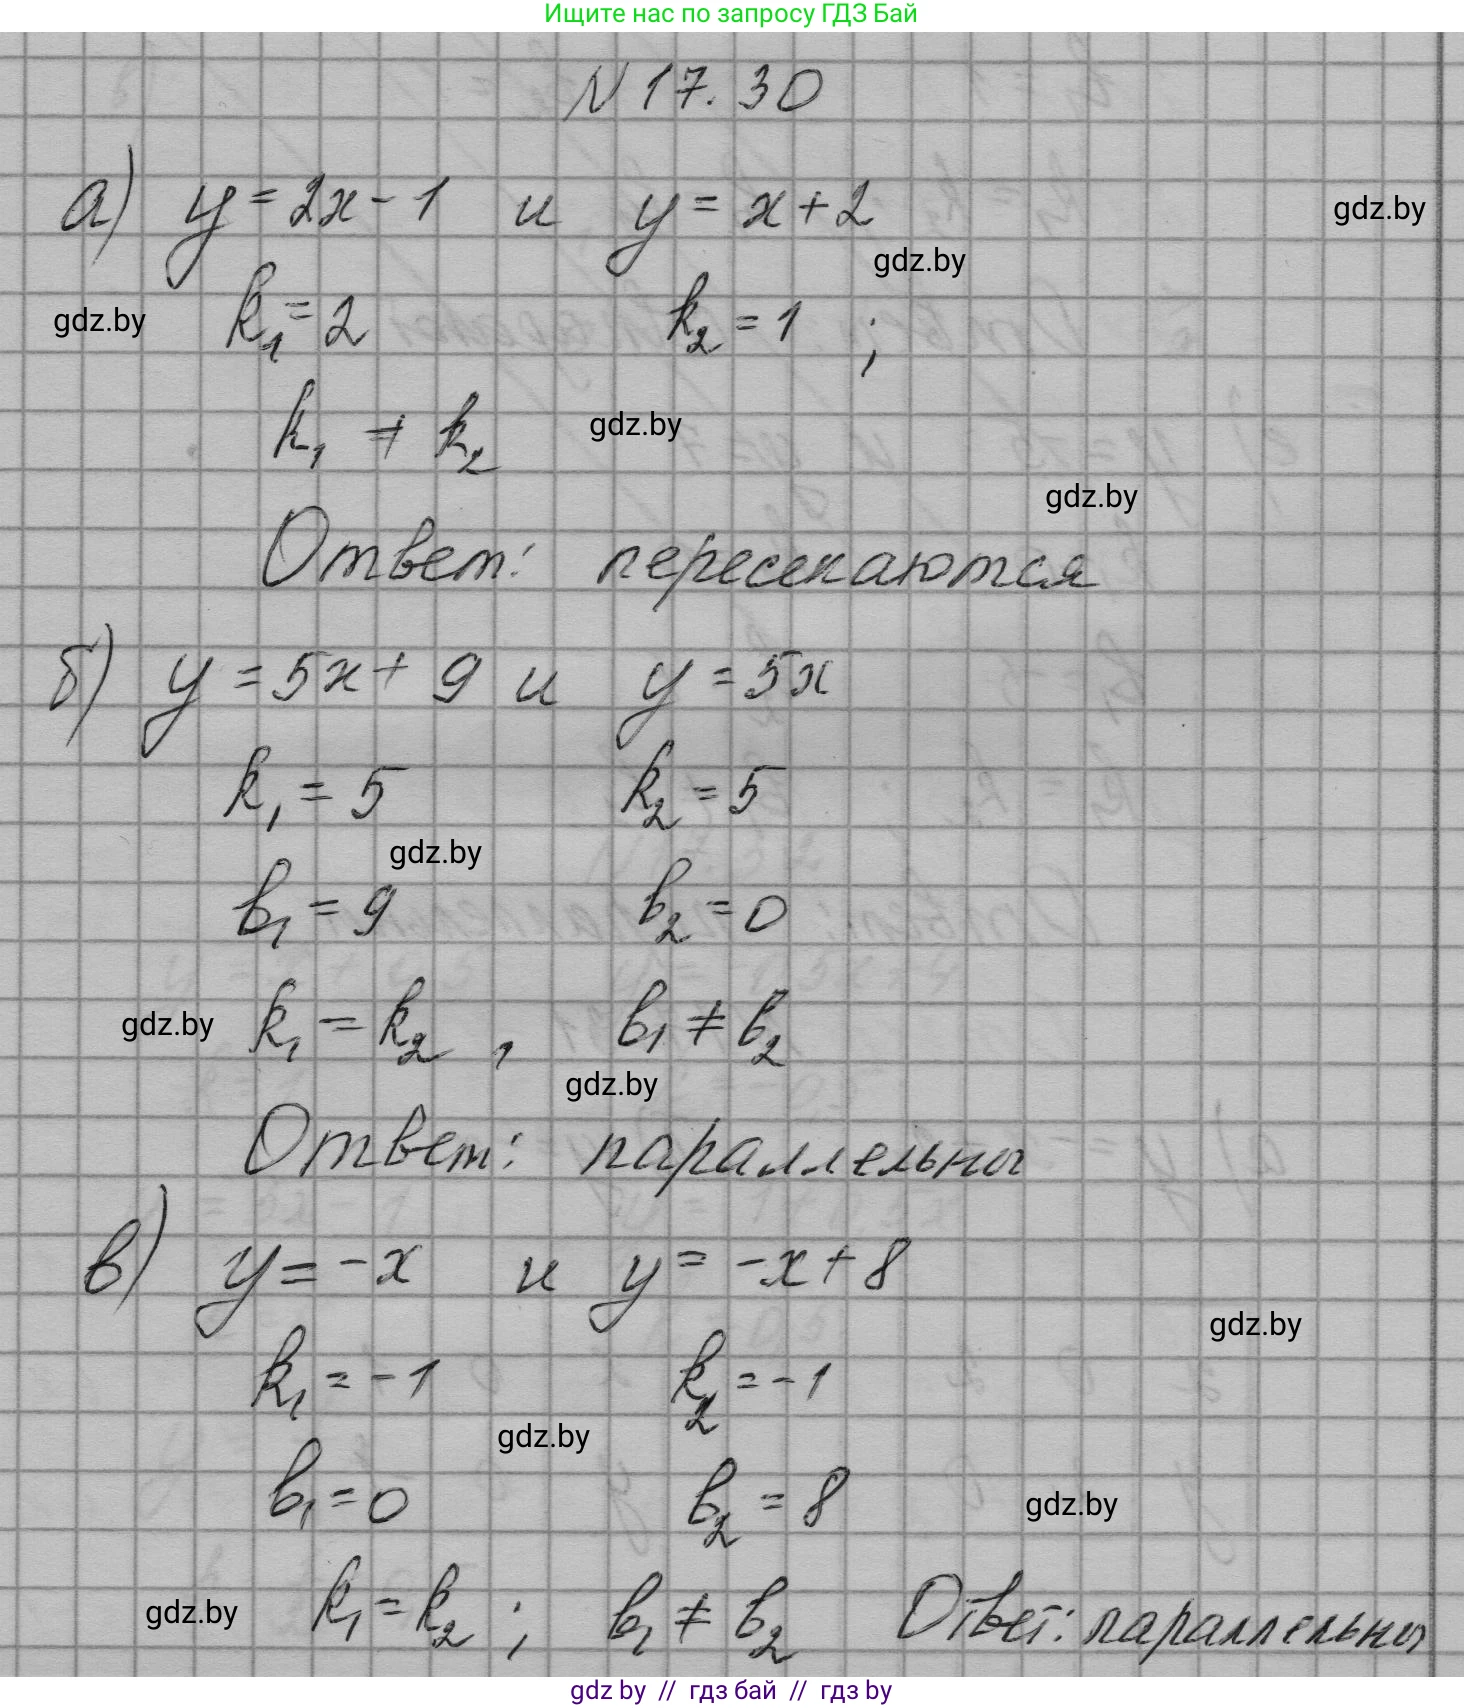 Ищите нас по запросу ГДЗ Бай
N 17.30
а) y = 2x - 1 и y = x + 2
gdz.by
gdz.by
k₁ = 2 k₂ = 1 ;
gdz.by
k₁ ≠ k₂
gdz.by
gdz.by
Ответ: пересекаются
б) y = 5x + 9 и y = 5x
k₁ = 5 k₂ = 5
gdz.by
b₁ = 9 b₂ = 0
gdz.by
k₁ = k₂ , b₁ ≠ b₂
gdz.by
Ответ: параллельны
в) y = -x и y = -x + 8
gdz.by
k₁ = -1 k₂ = -1
gdz.by
b₁ = 0 b₂ = 8
gdz.by
gdz.by
k₁ = k₂ ; b₁ ≠ b₂ Ответ: параллельны
gdz by // гдз бай // гдз by